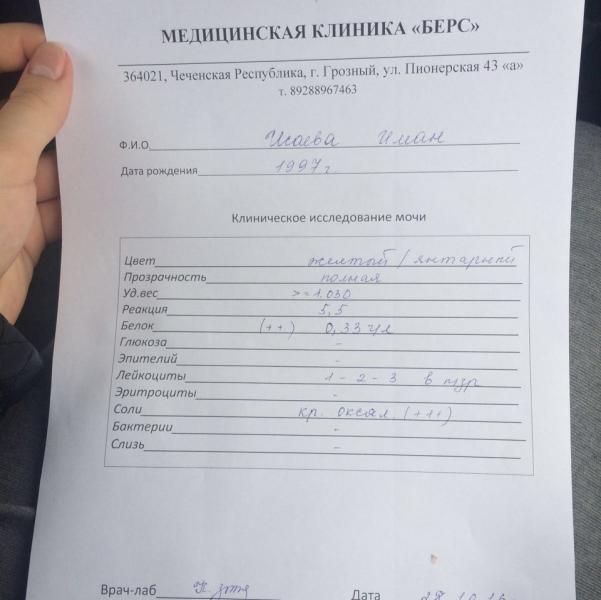 МЕДИЦИНСКАЯ КЛИНИКА «БЕРС»
364021, Чеченская Республика, г. Грозный, ул. Пионерская 43 «а»
т. 89288967463
Ф.И.О. Исаева Иман
Дата рождения 1997 г.
Клиническое исследование мочи
Цвет желтый / янтарный
Прозрачность полная
Уд.вес >= 1.030
Реакция 5,5
Белок (++) 0,33 г/л
Глюкоза -
Эпителий -
Лейкоциты 1 - 2 - 3 в п/зр
Эритроциты -
Соли кр. оксал. (+++)
Бактерии -
Слизь -
Врач-лаб
Дата